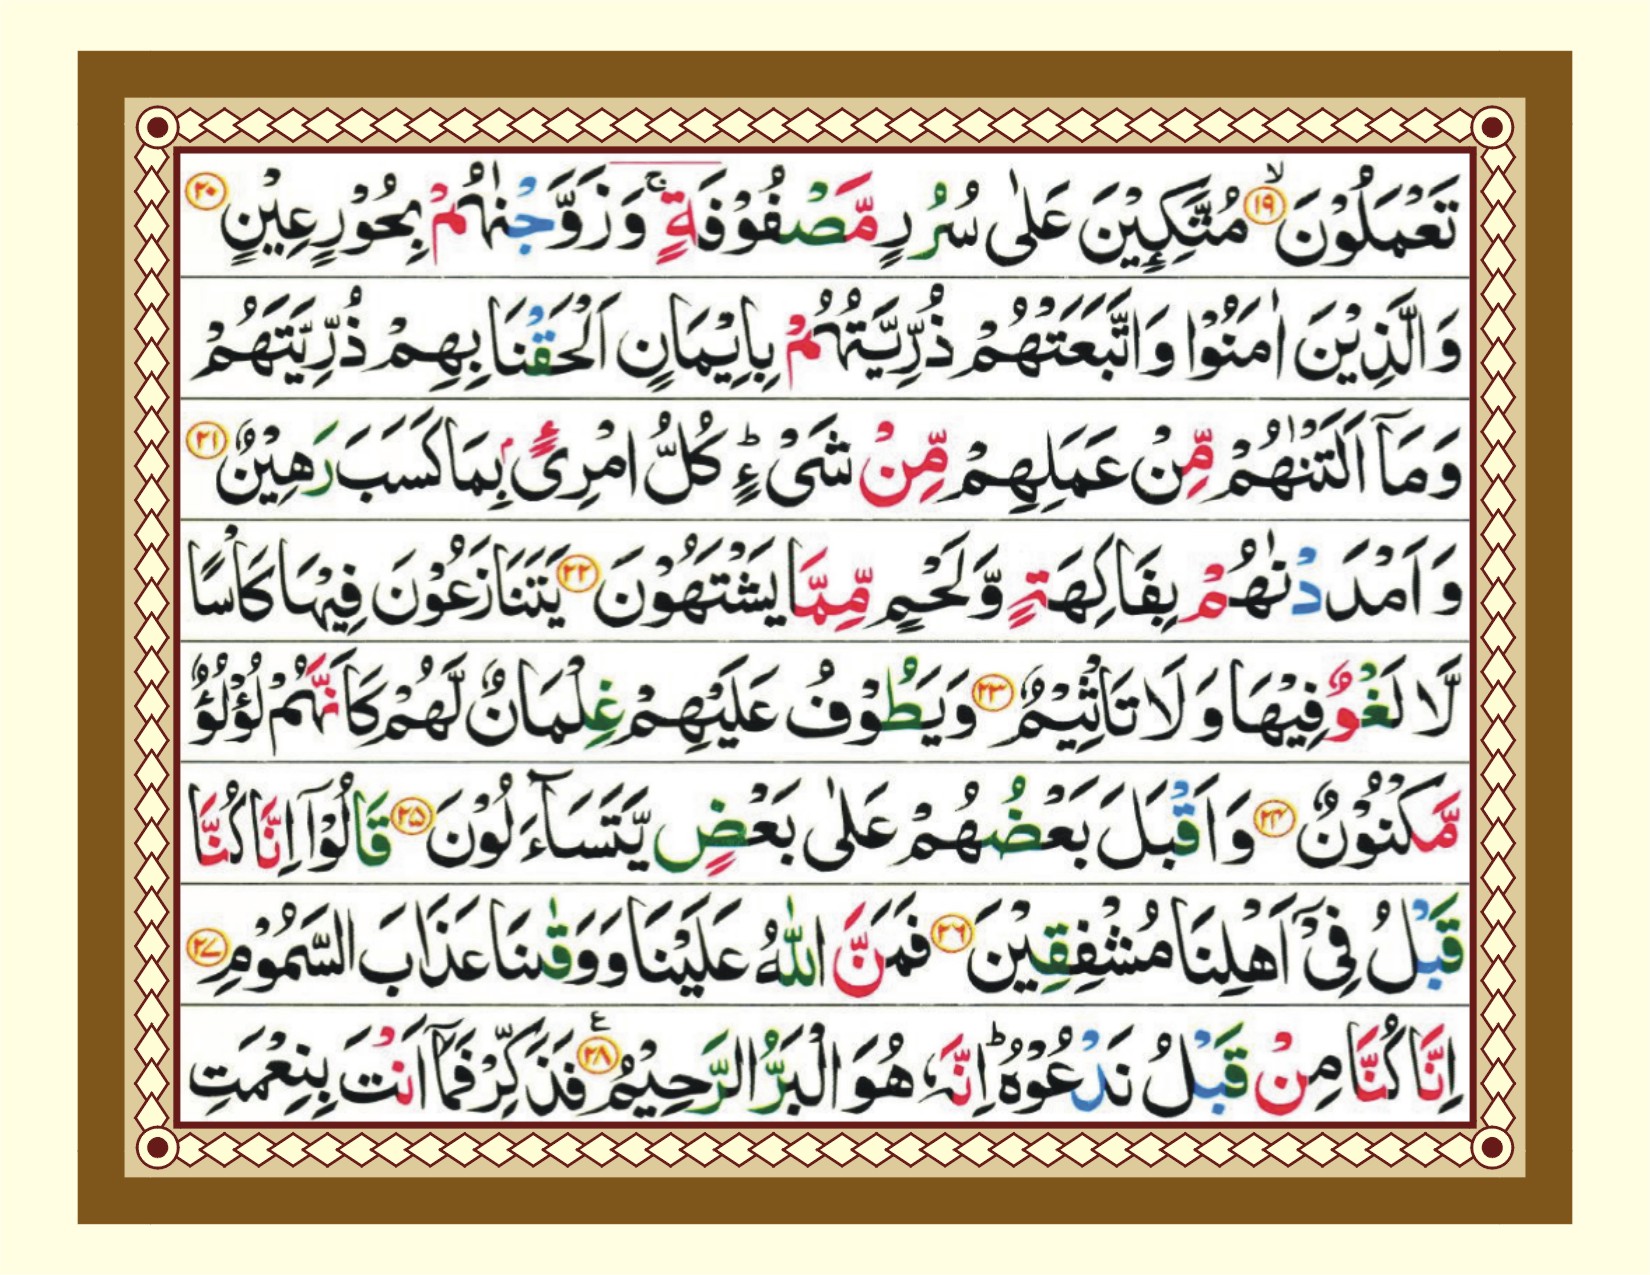 تَعْمَلُوْنَ ۙ﴿۱۹﴾ مُتَّكِـِٕيْنَ عَلٰى سُرُرٍ مَّصْفُوْفَةٍ ۚ وَزَوَّجْنٰهُمْ بِحُوْرٍ عِيْنٍ ﴿۲۰﴾
وَالَّذِيْنَ اٰمَنُوْا وَاتَّبَعَتْهُمْ ذُرِّيَّتُهُمْ بِاِيْمَانٍ اَلْحَقْنَا بِهِمْ ذُرِّيَّتَهُمْ
وَمَآ اَلَتْنٰهُمْ مِّنْ عَمَلِهِمْ مِّنْ شَىْءٍ ؕ كُلُّ امْرِیٴٍۭ بِمَا كَسَبَ رَهِيْنٌ ﴿۲۱﴾
وَاَمْدَدْنٰهُمْ بِفَاكِهَةٍ وَّلَحْمٍ مِّمَّا يَشْتَهُوْنَ ﴿۲۲﴾ يَتَنَازَعُوْنَ فِيْهَا كَاْسًا
لَّا لَغْوٌ فِيْهَا وَلَا تَاْثِيْمٌ ﴿۲۳﴾ وَيَطُوْفُ عَلَيْهِمْ غِلْمَانٌ لَّهُمْ كَاَنَّهُمْ لُؤْلُؤٌ
مَّكْنُوْنٌ ﴿۲۴﴾ وَاَقْبَلَ بَعْضُهُمْ عَلٰى بَعْضٍ يَّتَسَآءَلُوْنَ ﴿۲۵﴾ قَالُوْٓا اِنَّا كُنَّا
قَبْلُ فِىْٓ اَهْلِنَا مُشْفِقِيْنَ ﴿۲۶﴾ فَمَنَّ اللّٰهُ عَلَيْنَا وَوَقٰىنَا عَذَابَ السَّمُوْمِ ﴿۲۷﴾
اِنَّا كُنَّا مِنْ قَبْلُ نَدْعُوْهُ ؕ اِنَّهٗ هُوَ الْبَرُّ الرَّحِيْمُ ﴿۲۸﴾ ع فَذَكِّرْ فَمَآ اَنْتَ بِنِعْمَتِ